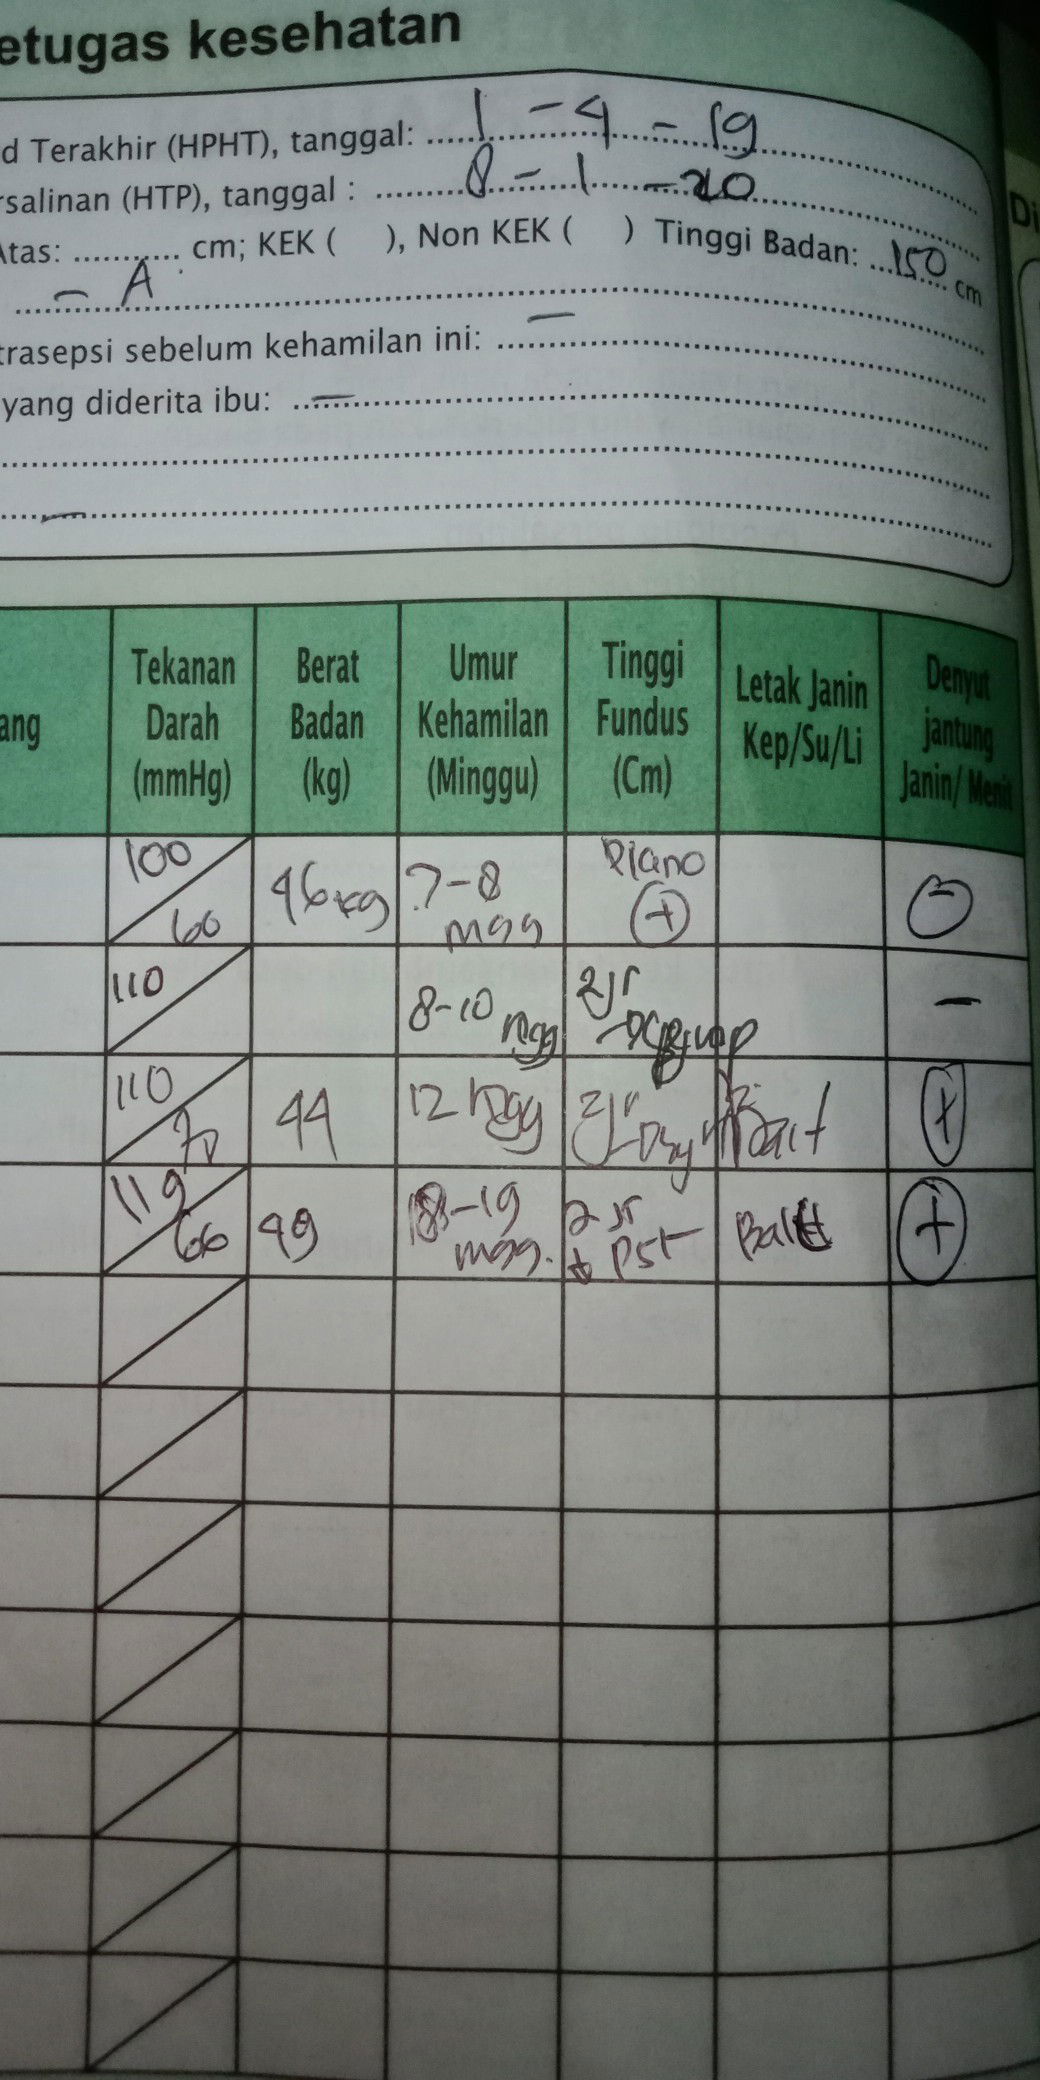 etugas kesehatan
d Terakhir (HPHT), tanggal: 1 - 4 - 19
rsalinan (HTP), tanggal : 8 - 1 - 20
Atas: ........... cm; KEK ( ), Non KEK ( ) Tinggi Badan: 150 cm
- A
trasepsi sebelum kehamilan ini: -
yang diderita ibu: -
-
Di
ang
Tekanan Darah (mmHg)
Berat Badan (kg)
Umur Kehamilan (Minggu)
Tinggi Fundus (Cm)
Letak Janin Kep/Su/Li
Denyut jantung Janin/ Menit
100/60 46 kg 7-8 mgg Plano (+) (-)
110/ 8-10 mgg 2jr -
110/70 44 12 mgg 2jr (+)
119/66 49 18-19 mgg. 2 jr pst Ball (+)